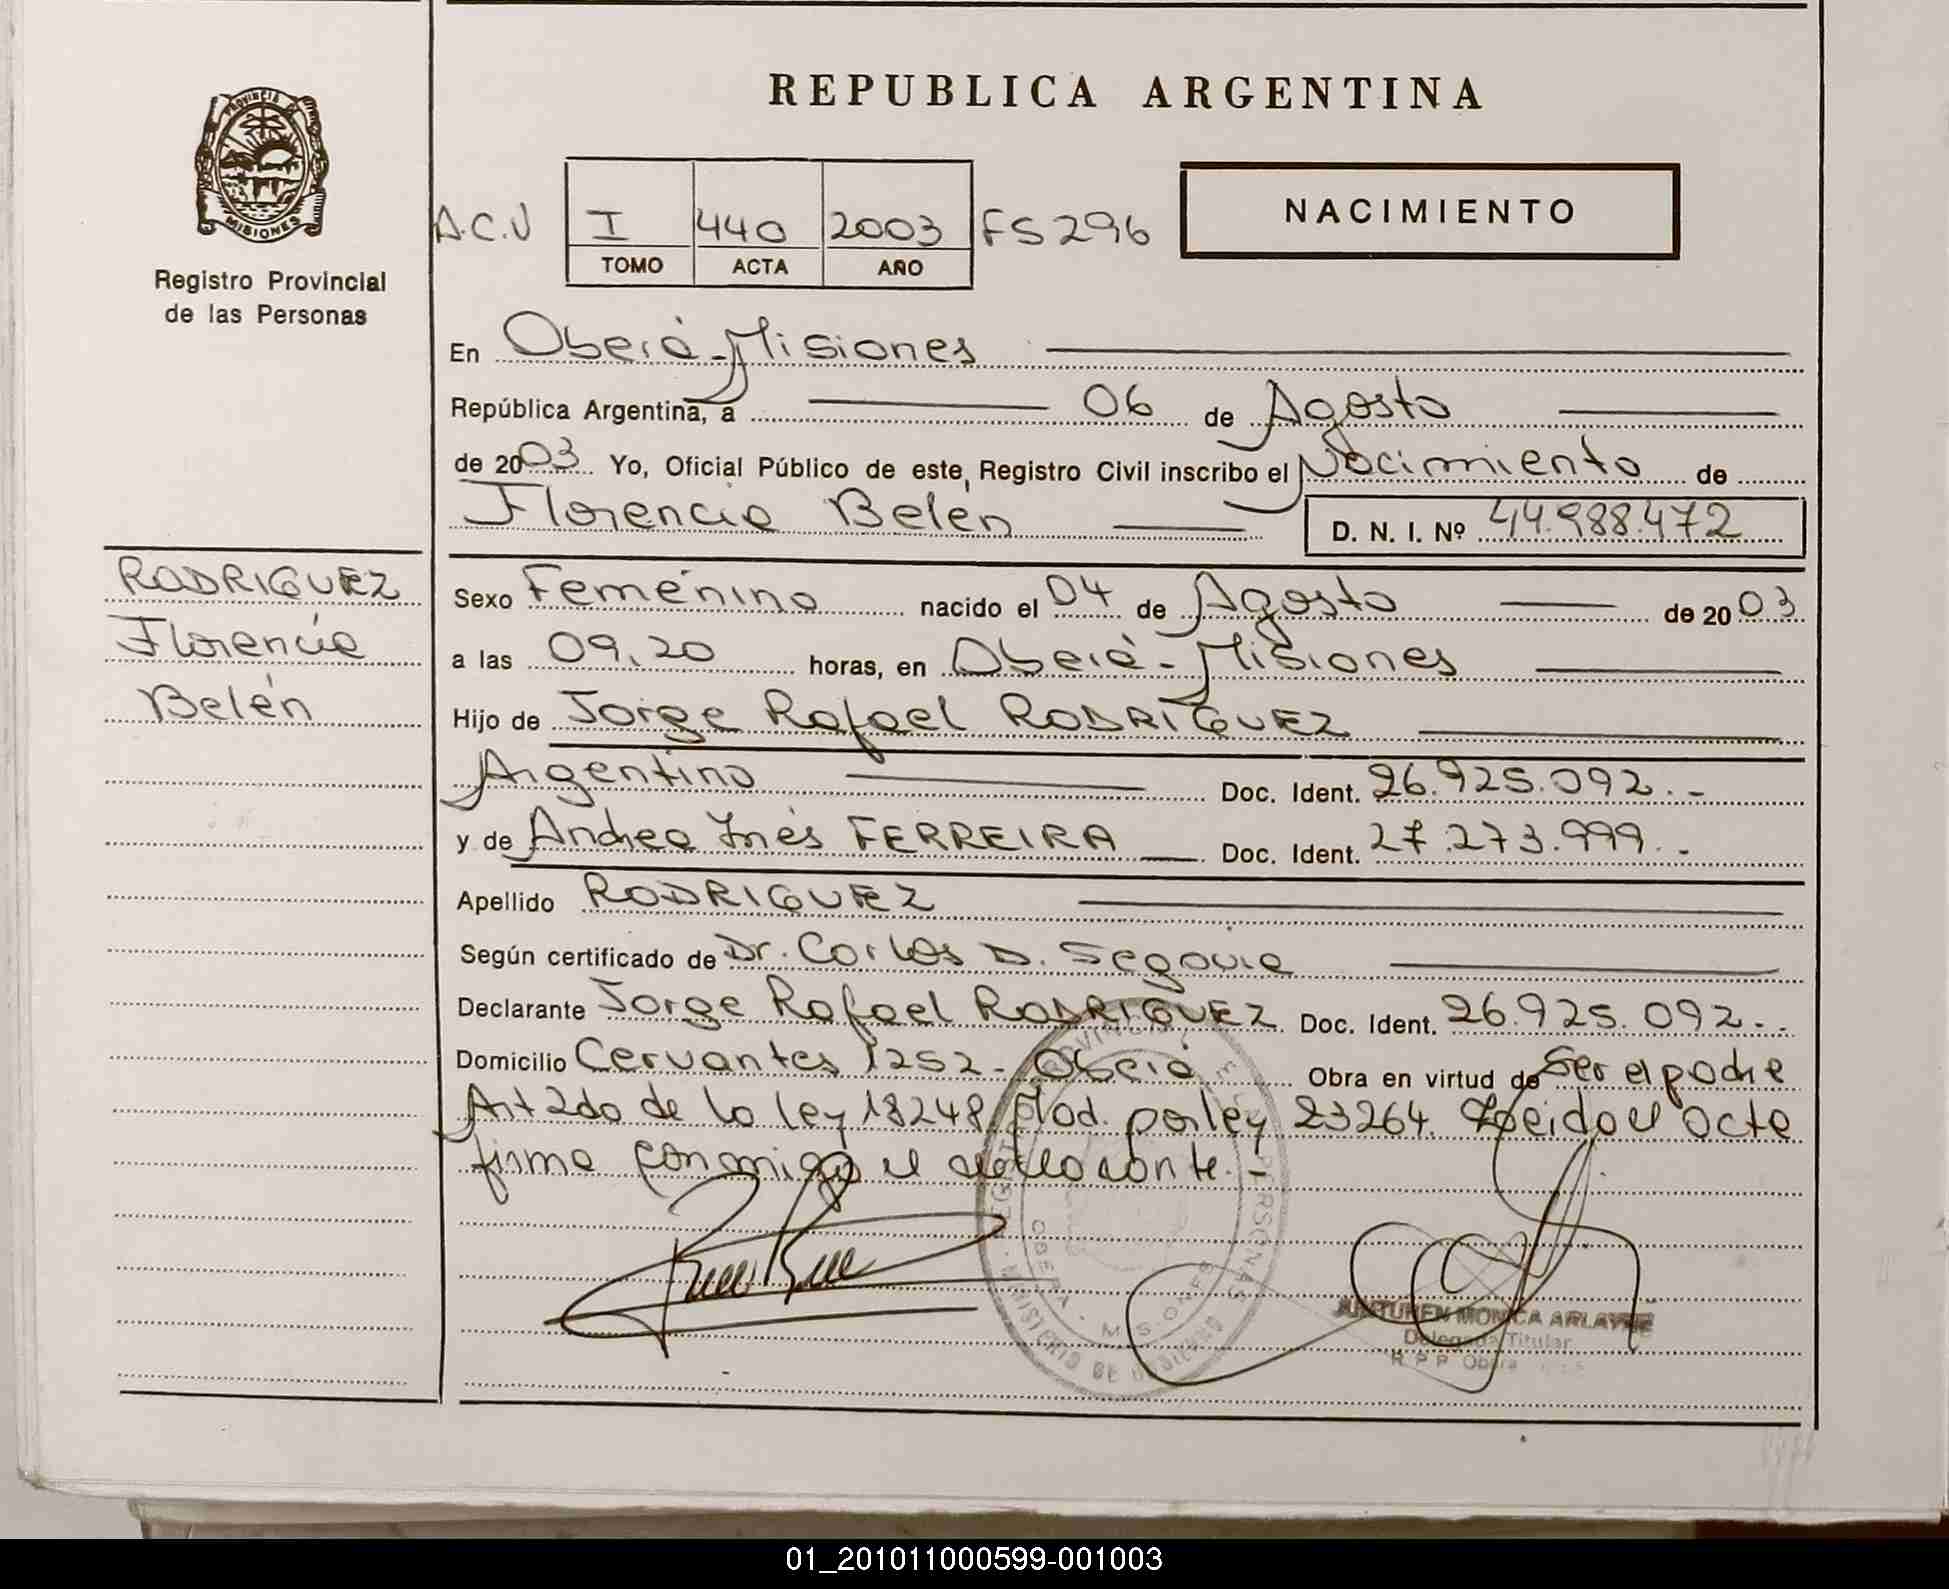 REPUBLICA ARGENTINA
PROVINCIA DE
MISIONES
Registro Provincial
de las Personas
A.C.V I 440 2003 FS 296
TOMO ACTA AÑO
NACIMIENTO
En Oberá - Misiones
República Argentina, a 06 de Agosto
de 2003 Yo, Oficial Público de este Registro Civil inscribo el Nacimiento de
Florencia Belén D. N. I. Nº 44.988.472
RODRIGUEZ
Florencia
Belén
Sexo Femenino nacido el 04 de Agosto de 2003
a las 09,20 horas, en Oberá - Misiones
Hijo de Jorge Rafael RODRIGUEZ
Argentino Doc. Ident. 26.925.092.-
y de Andrea Inés FERREIRA Doc. Ident. 27.273.999.-
Apellido RODRIGUEZ
Según certificado de Dr. Carlos D. Segovia
Declarante Jorge Rafael RODRIGUEZ Doc. Ident. 26.925.092.-
Domicilio Cervantes 1252 - Oberá Obra en virtud de Ser el padre
Art 2do de la ley 18248 Mod. por ley 23264. Leida el acta
firma conmigo el declarante.-
OBERA - MISIONES
MINISTERIO DE GOBIERNO
MONICA ARLAYNE
Delegada Titular
R P P Obera
01_201011000599-001003